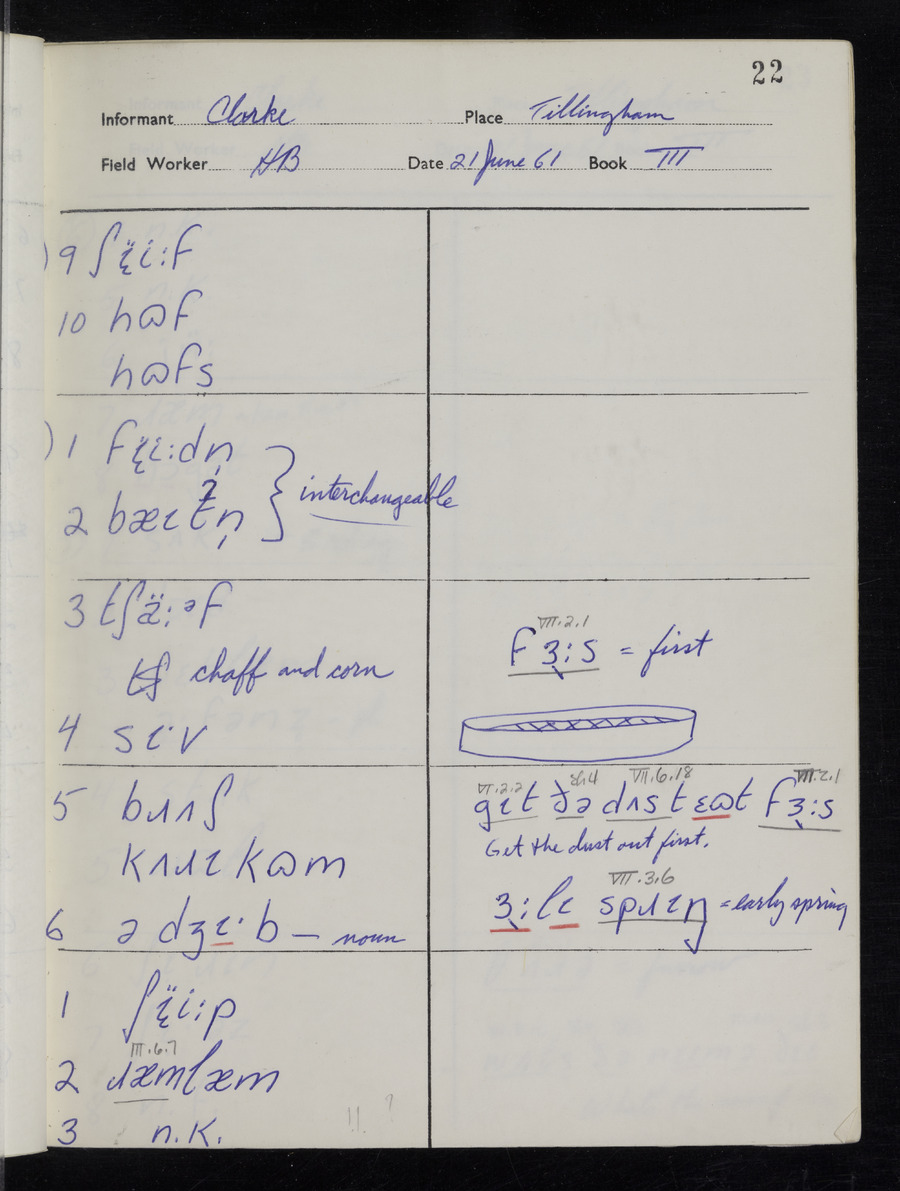 22
Informant Clarke Place Tillingham
Field Worker HB Date 21 June 61 Book III
) 9 ʃɪ̈i:f
10 hɷf
hɷfs
) 1 fɪ̈i:dn̩
2 bæɪtʔn̩
} interchangeable
3 tʃä:ᵊf
chaff and corn
4 sɪ·v
VII.2.1
fɜ:s = first
5 bɹʌʃ
kʌɹɪkɷm
6 ə dʒɪ·b — noun
VI.2.2 VII.6.18 VII.2.1
gɪt ðə dʌst ɛɷt fɜ:s
Get the dust out first.
VII.3.6
ɜ:lɪ spɹɪŋ = early spring
1 ʃɪ̈i:p
III.6.7
2 ɹæmlæm
3 n.k.
!! ?